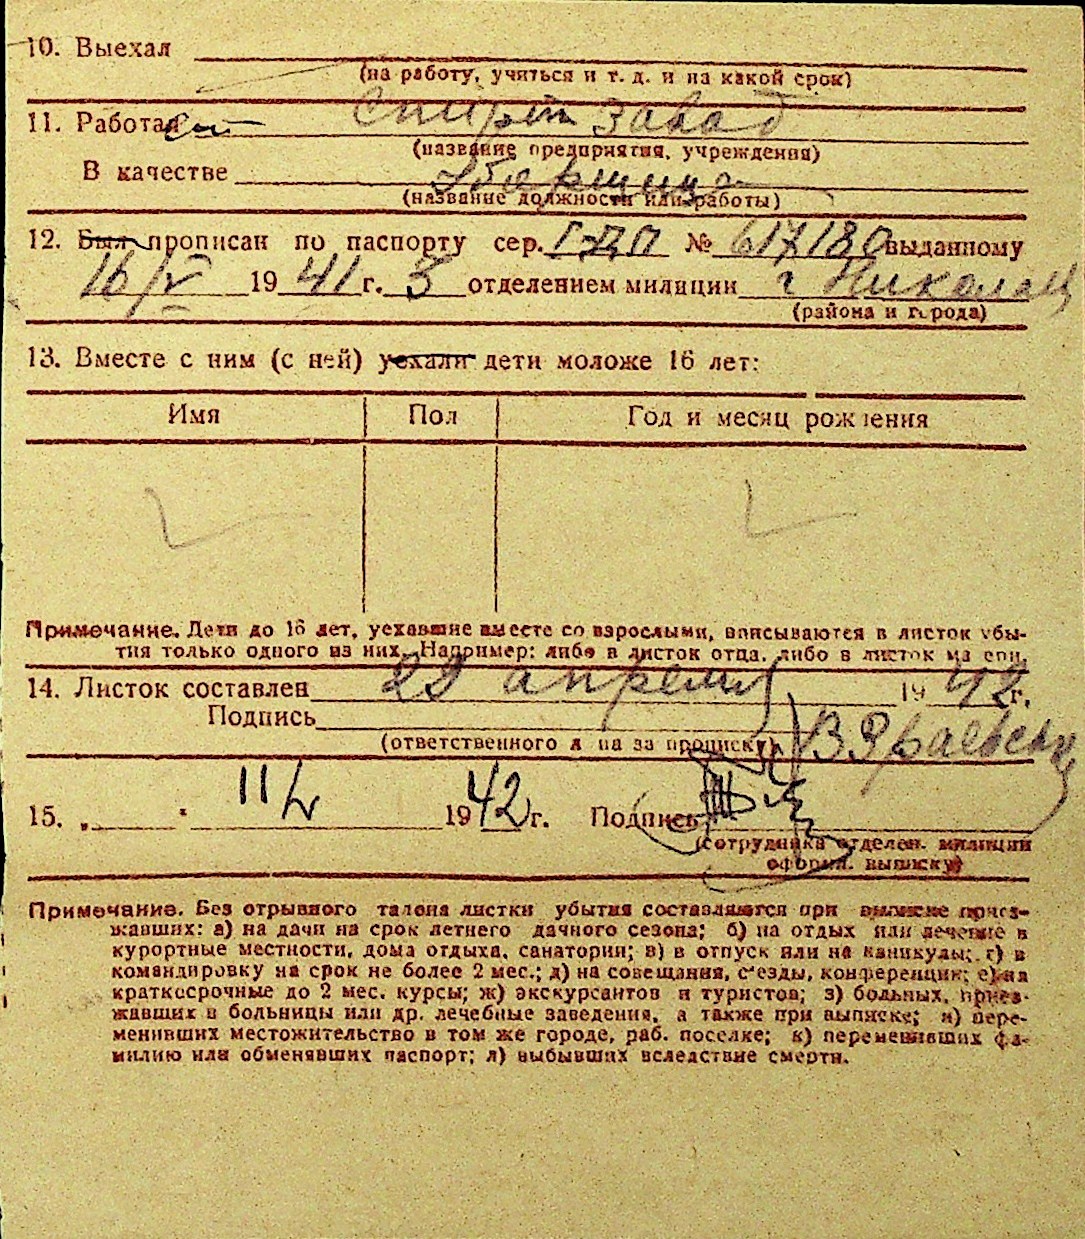 10. Выехал
(на работу, учиться и т. д. и на какой срок)
11. Работает спирт завод
(название предприятия, учреждения)
В качестве
(название должности или работы)
12. Был прописан по паспорту сер. № 617180 выданному
16/V 1941 г. 3 отделением милиции г Николаев
(района и города)
13. Вместе с ним (с ней) уехали дети моложе 16 лет:
Имя Пол Год и месяц рождения
Примечание. Дети до 16 лет, уехавшие вместе со взрослыми, вписываются в листок убы-
тия только одного из них. Например: либо в листок отца, либо в листок матери.
14. Листок составлен 28 апреля 1942г.
Подпись
(ответственного лица за прописку)
15. „ " 11/V 1942г. Подпись
(сотрудника отделен. милиции
оформ. выписку)
Примечание. Без отрывного талона листки убытия составляются при выписке приез-
жавших: а) на дачи на срок летнего дачного сезона; б) на отдых или лечение в
курортные местности, дома отдыха, санатории; в) в отпуск или на каникулы; г) в
командировку на срок не более 2 мес.; д) на совещания, съезды, конференции; е) на
краткосрочные до 2 мес. курсы; ж) экскурсантов и туристов; з) больных, приез-
жавших в больницы или др. лечебные заведения, а также при выписке; и) пере-
менивших местожительство в том же городе, раб. поселке; к) переменивших фа-
милию или обменявших паспорт; л) выбывших вследствие смерти.